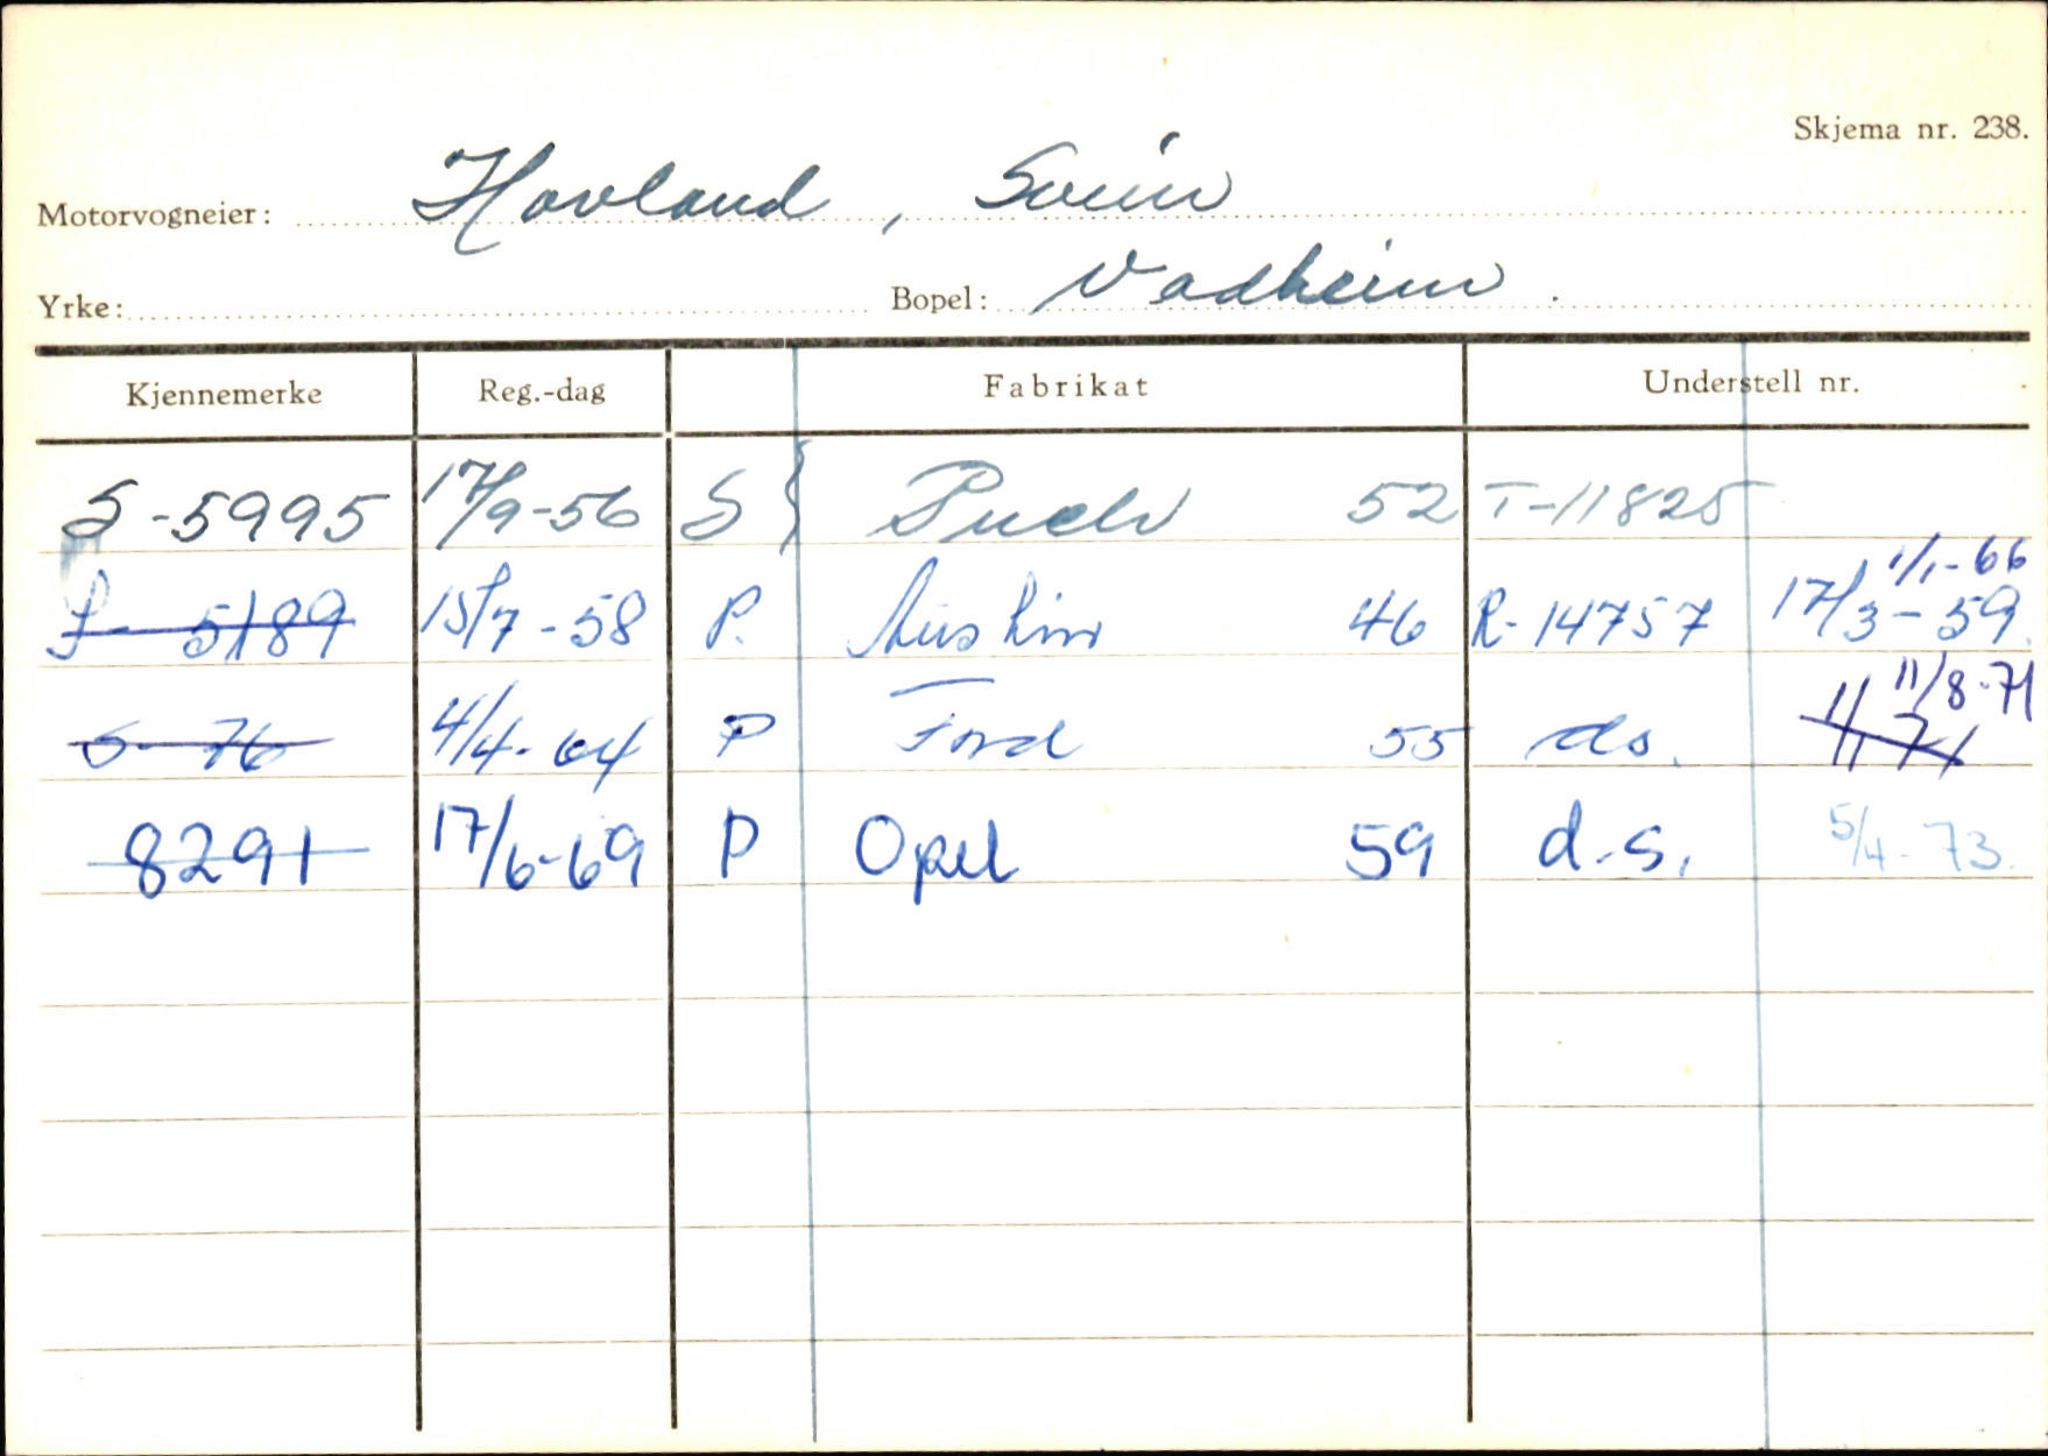 Skjema nr. 238.
Motorvogneier: Hovland, Svein
Yrke: Bopel: Vadheim.
Kjennemerke Reg.-dag Fabrikat Understell nr.
S-5995 17/9-56 S Puch 52 T-11825
1/1-66
S-5189 15/7-58 P. Austin 46 R-14757 17/3-59.
11/8-71
S-76 4/4-64 P Ford 55 ds. 1/1 71
8291 17/6-69 P Opel 59 d.s. 5/4-73.